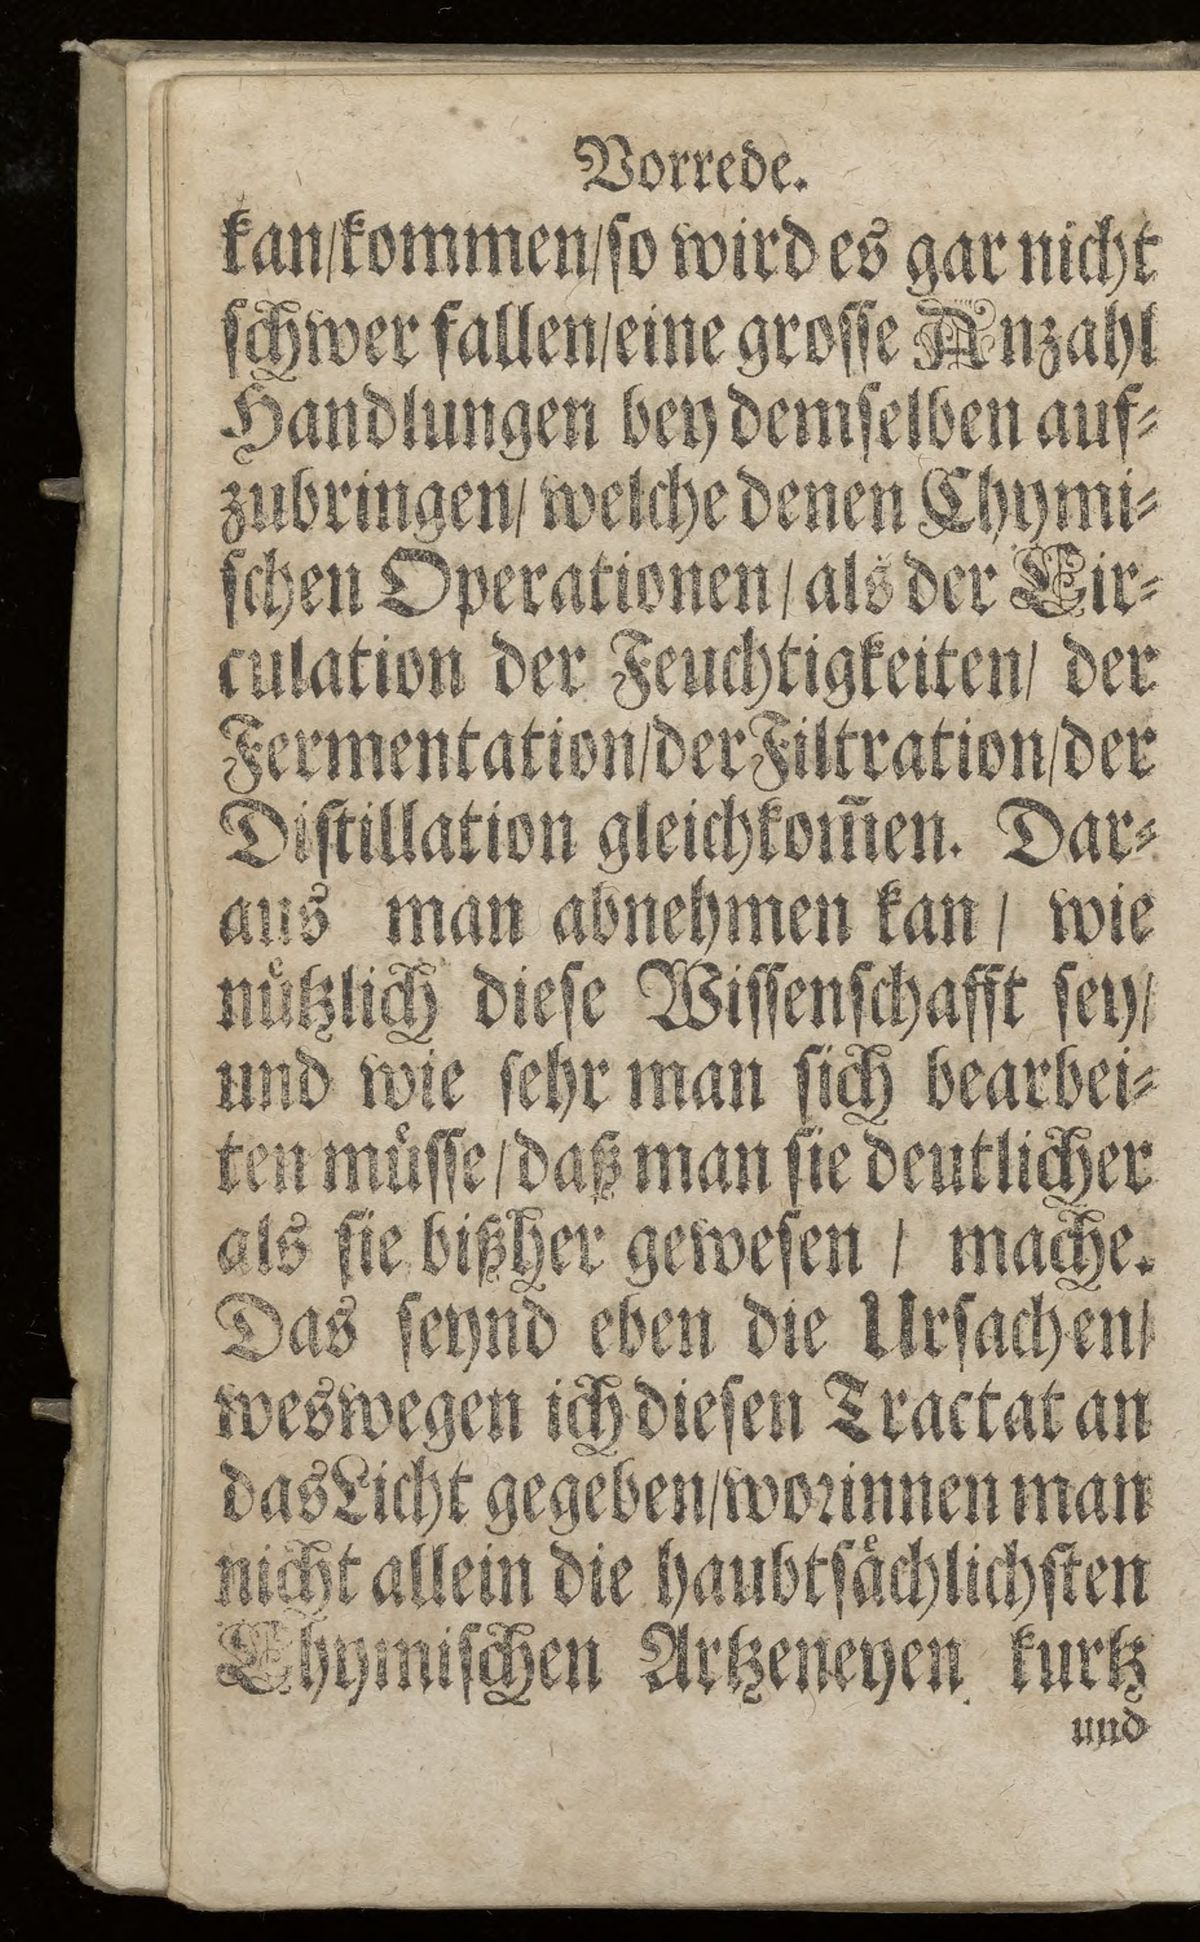 Vorrede.
kan/kommen/ſo wird es gar nicht
ſchwer fallen/eine groſſe Anzahl
Handlungen bey demſelben auf⸗
zubringen/ welche denen Chymi⸗
ſchen Operationen / als der Cir⸗
culation der Feuchtigkeiten/ der
Fermentation/der Filtration/der
Diſtillation gleichkom̃en. Dar⸗
aus man abnehmen kan / wie
nuͤtzlich dieſe Wiſſenſchafft ſey/
und wie ſehr man ſich bearbei⸗
ten muͤſſe/daß man ſie deutlicher
als ſie bißher geweſen / mache.
Das ſeynd eben die Urſachen/
weswegen ich dieſen Tractat an
das Licht gegeben/woꝛinnen man
nicht allein die haubtſaͤchlichſten
Chymiſchen Artzeneyen kurtz
und